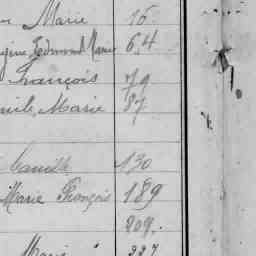 Marie 16
Edmond Marie 64
François 79
Marie 87
Camille 130
Marie François 189
209.
Marie 227